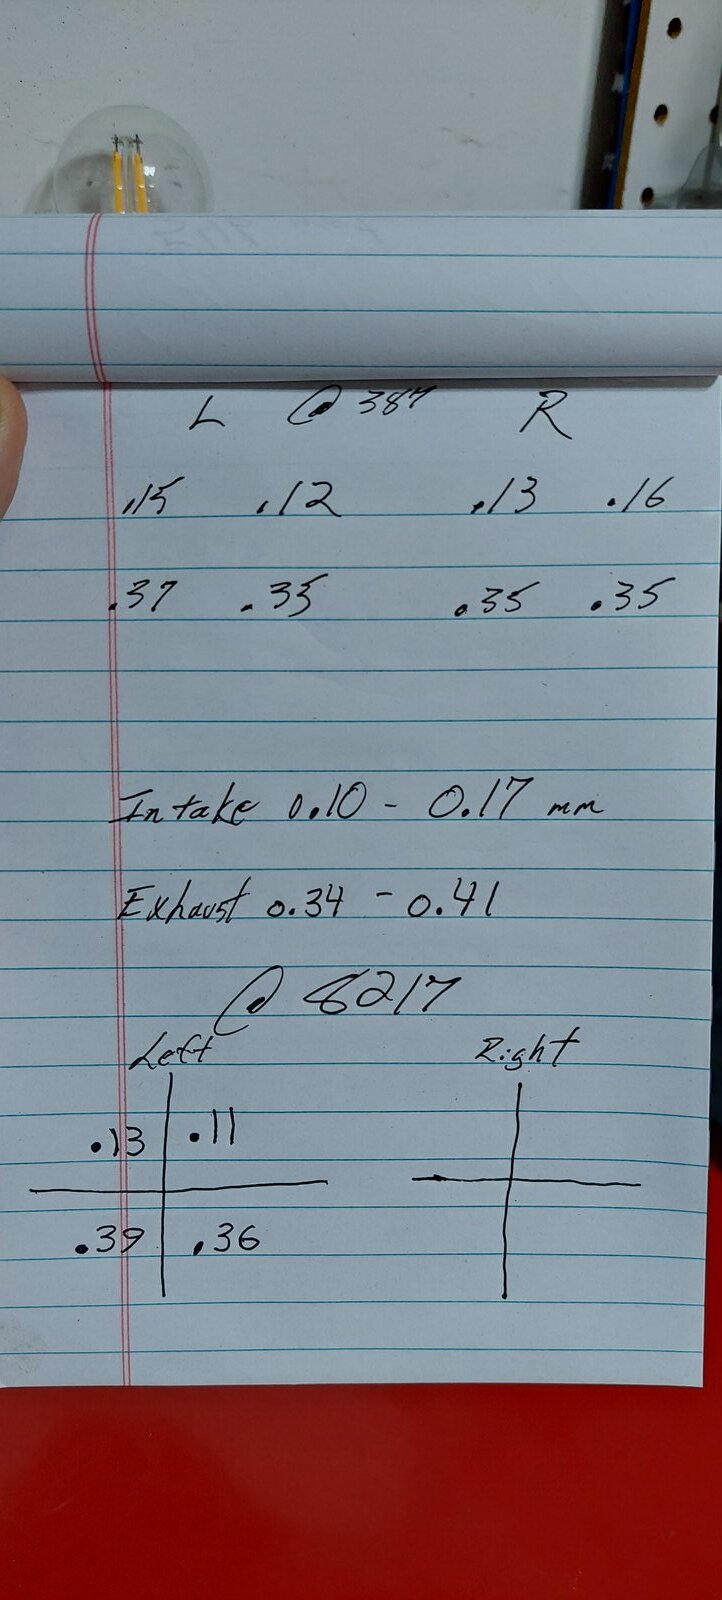 L @ 387 R
.15 .12 .13 .16
.37 .35 .35 .35
Intake 0.10 - 0.17 mm
Exhaust 0.34 - 0.41
@ 6217
Left Right
.13 .11
.39 .36